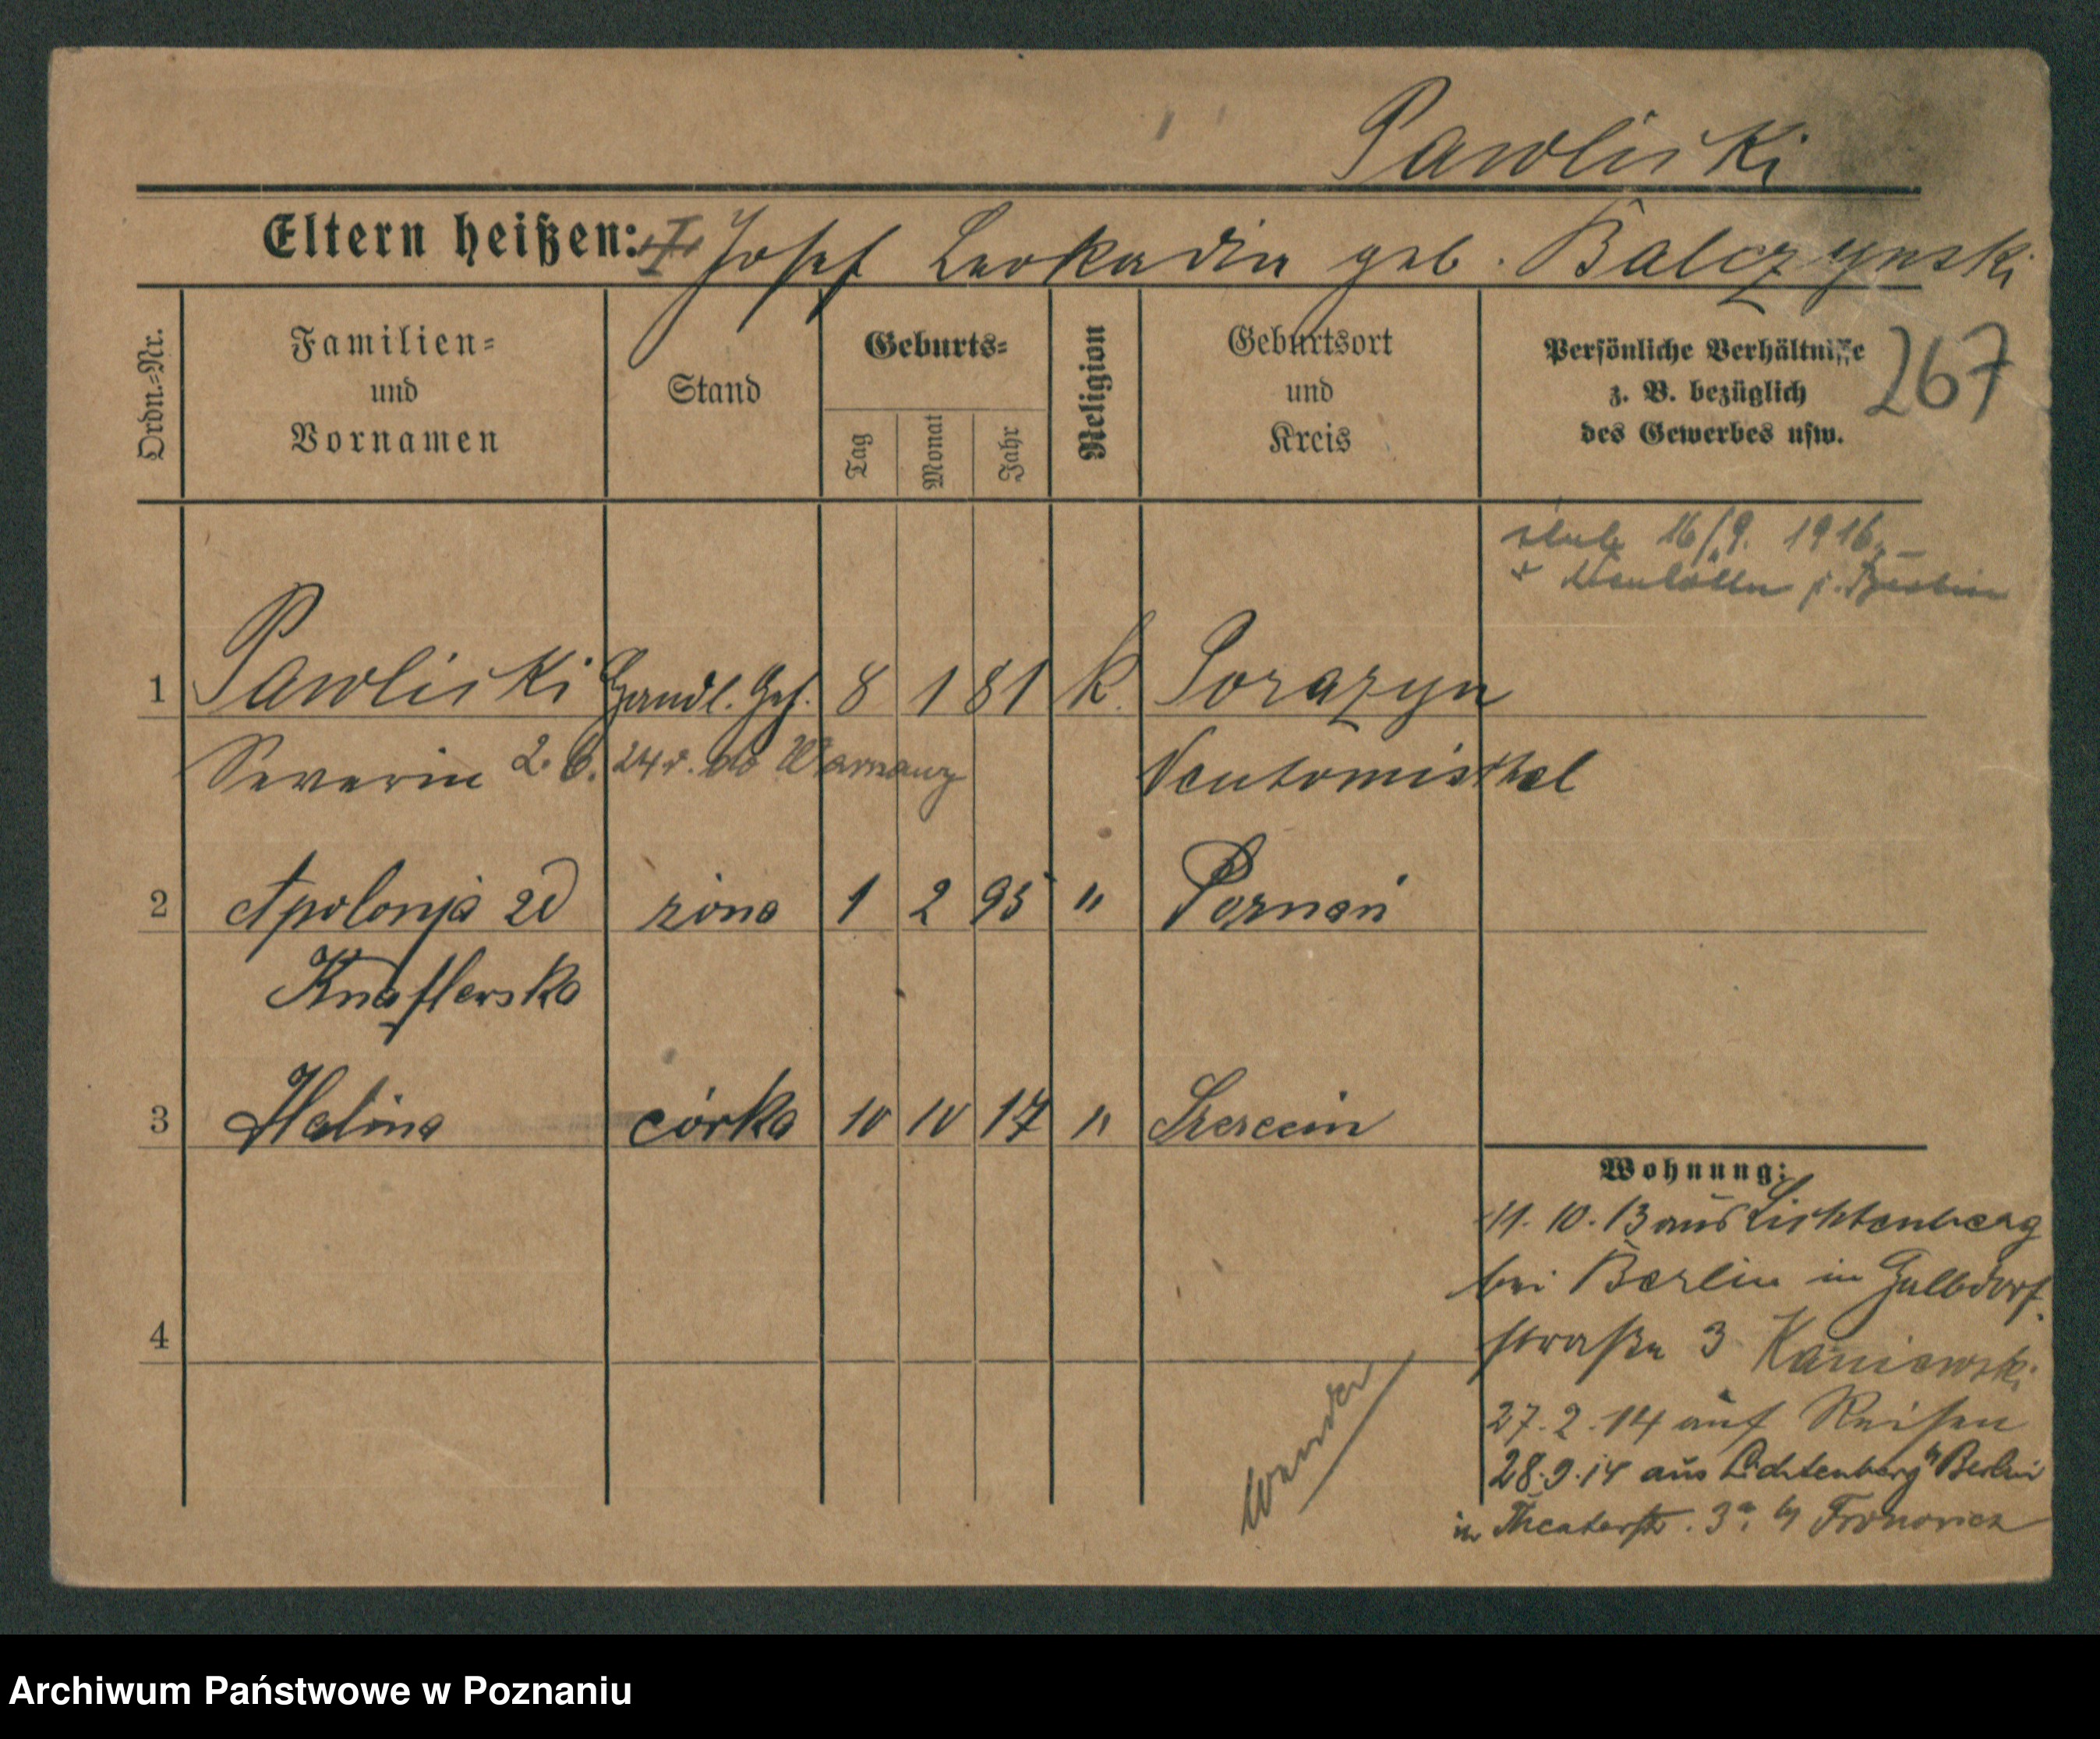 Pawliski
Eltern heißen: I Josef Leokadia geb. Balczynski
Ordn.=Nr.
Familien=
und
Vornamen
Stand
Geburts=
Tag
Monat
Jahr
Religion
Geburtsort
und
Kreis
Persönliche Verhältnisse
z. B. bezüglich
des Gewerbes usw.
267
ślub 16/9. 1916.
w Neukölln p. Berlin
1 Pawliski Handl. Geh. 8 1 81 k. Porazyn
Severin 2. 6. 24 r. do Neutomischel
2 Apolonja zd żona 1 2 95 " Poznań
Knaflewska
3 Halina córka 10 10 17 "
4
Wohnung:
11. 10. 13 aus Lichtenberg
bei Berlin in Halbdorf
straße 3 Kaniewski
27. 2. 14 auf Reisen
28. 9. 14 aus Lichtenberg b/ Berlin
in Theaterstr. 3a b/
Archiwum Państwowe w Poznaniu